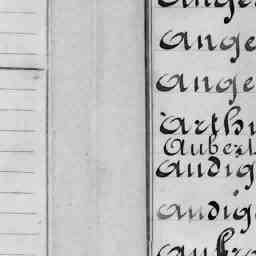 Ange
Ange
Ange
Arthu
Aubert
Audig
Audig